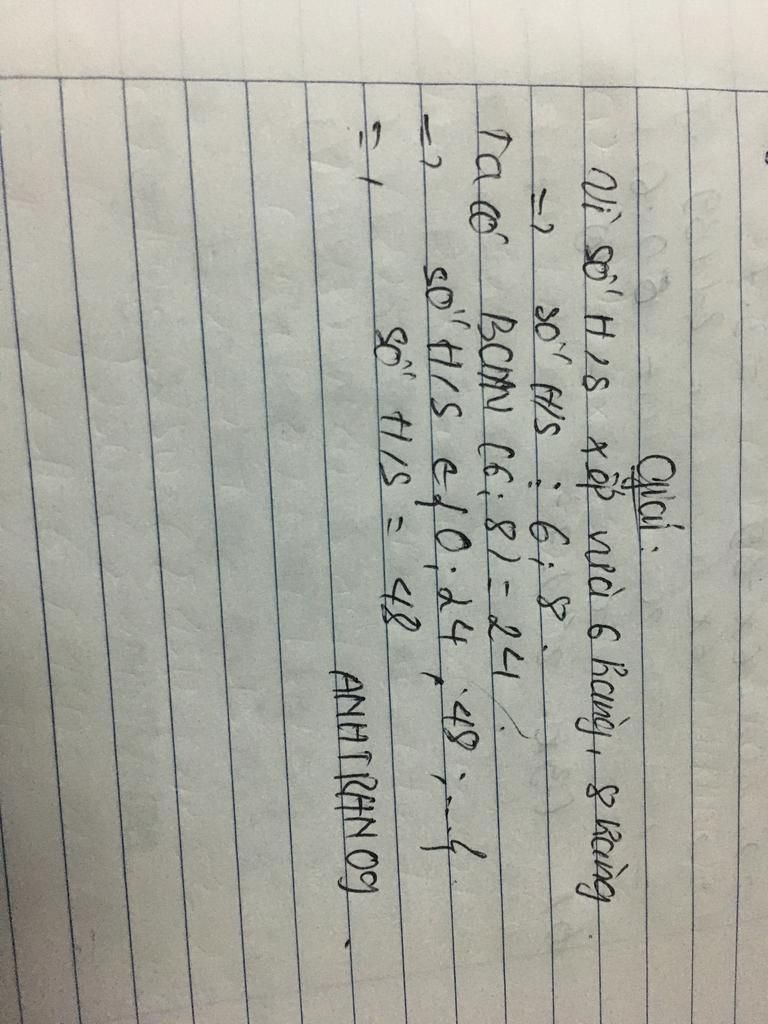 Giải:
Vì số H/S xếp vừa 6 hàng, 8 hàng.
=> số H/S ⋮ 6; 8.
Ta có BCNN (6; 8) = 24.
=> số H/S ∈ {0; 24; 48; ...}.
=> số H/S = 48
ANHTRAN09.